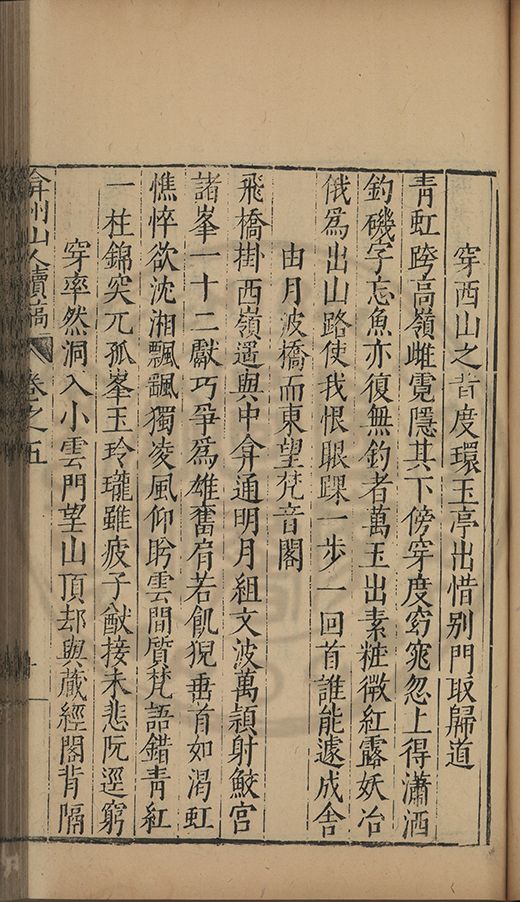 穿西山之背度環玉亭出惜別門取歸道
青虹跨高嶺雌霓隱其下傍穿度窈窕忽上得瀟洒
釣磯字忘魚亦復無釣者萬玉出素粧微紅露妖冶
俄為出山路使我恨眼踝一步一回首誰能遽成舍
由月波橋而東望梵音閣
飛橋掛西嶺遥與中弇通明月組文波萬頴射鮫宮
諸峯一十二獻巧爭為雄奮肩若飢猊垂首如渴虹
憔悴欲沈湘飄颻獨凌風仰盻雲間質梵語錯青紅
一柱錦突兀孤峯玉玲瓏雖疲子猷接未悲阮逕窮
穿率然洞入小雲門望山頂却與藏經閣背隔
弇州山人續稿 卷之五
十一